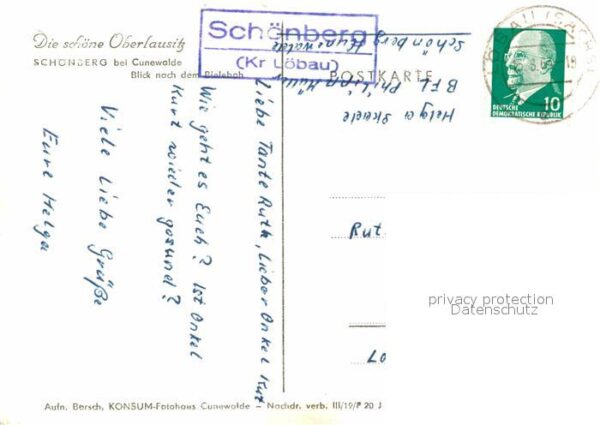 Die schöne Oberlausitz
SCHÖNBERG bei Cunewalde
Blick nach dem Bieleboh
Schönberg
(Kr Löbau)
POSTKARTE
LÖBAU (SACHS)
10
DEUTSCHE
DEMOKRATISCHE REPUBLIK
Helga
BFL Philipp Müller
Schönberg Cunewalde
Liebe Tante Ruth, Lieber Onkel Kurt
Wie geht es Euch? Ist Onkel
Kurt wieder gesund?
Viele Liebe Grüße
Eure Helga
Rut
privacy protection
Datenschutz
Aufn. Bersch, KONSUM-Fotohaus Cunewalde — Nachdr. verb. III/19/P 20 J